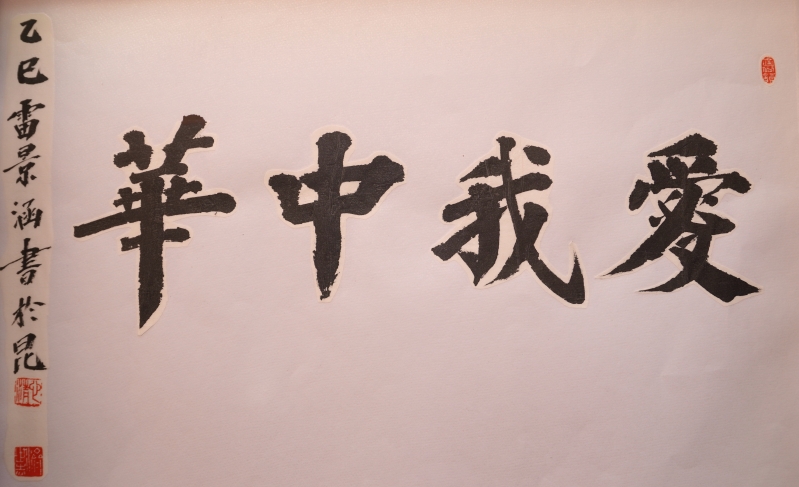 愛我中華
乙巳雷景涵書於昆